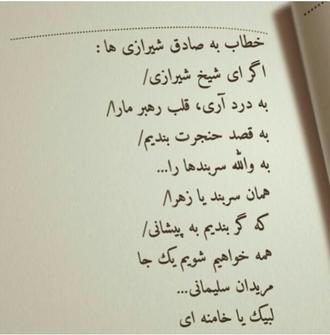 خطاب به صادق شیرازی ها :
اگر ای شیخ شیرازی/
به درد آری، قلب رهبر مارا/
به قصد حنجرت بندیم/
به والله سربندها را...
همان سربند یا زهرا/
که گر بندیم به پیشانی/
همه خواهیم شویم یک جا
مریدان سلیمانی...
لبیک یا خامنه ای